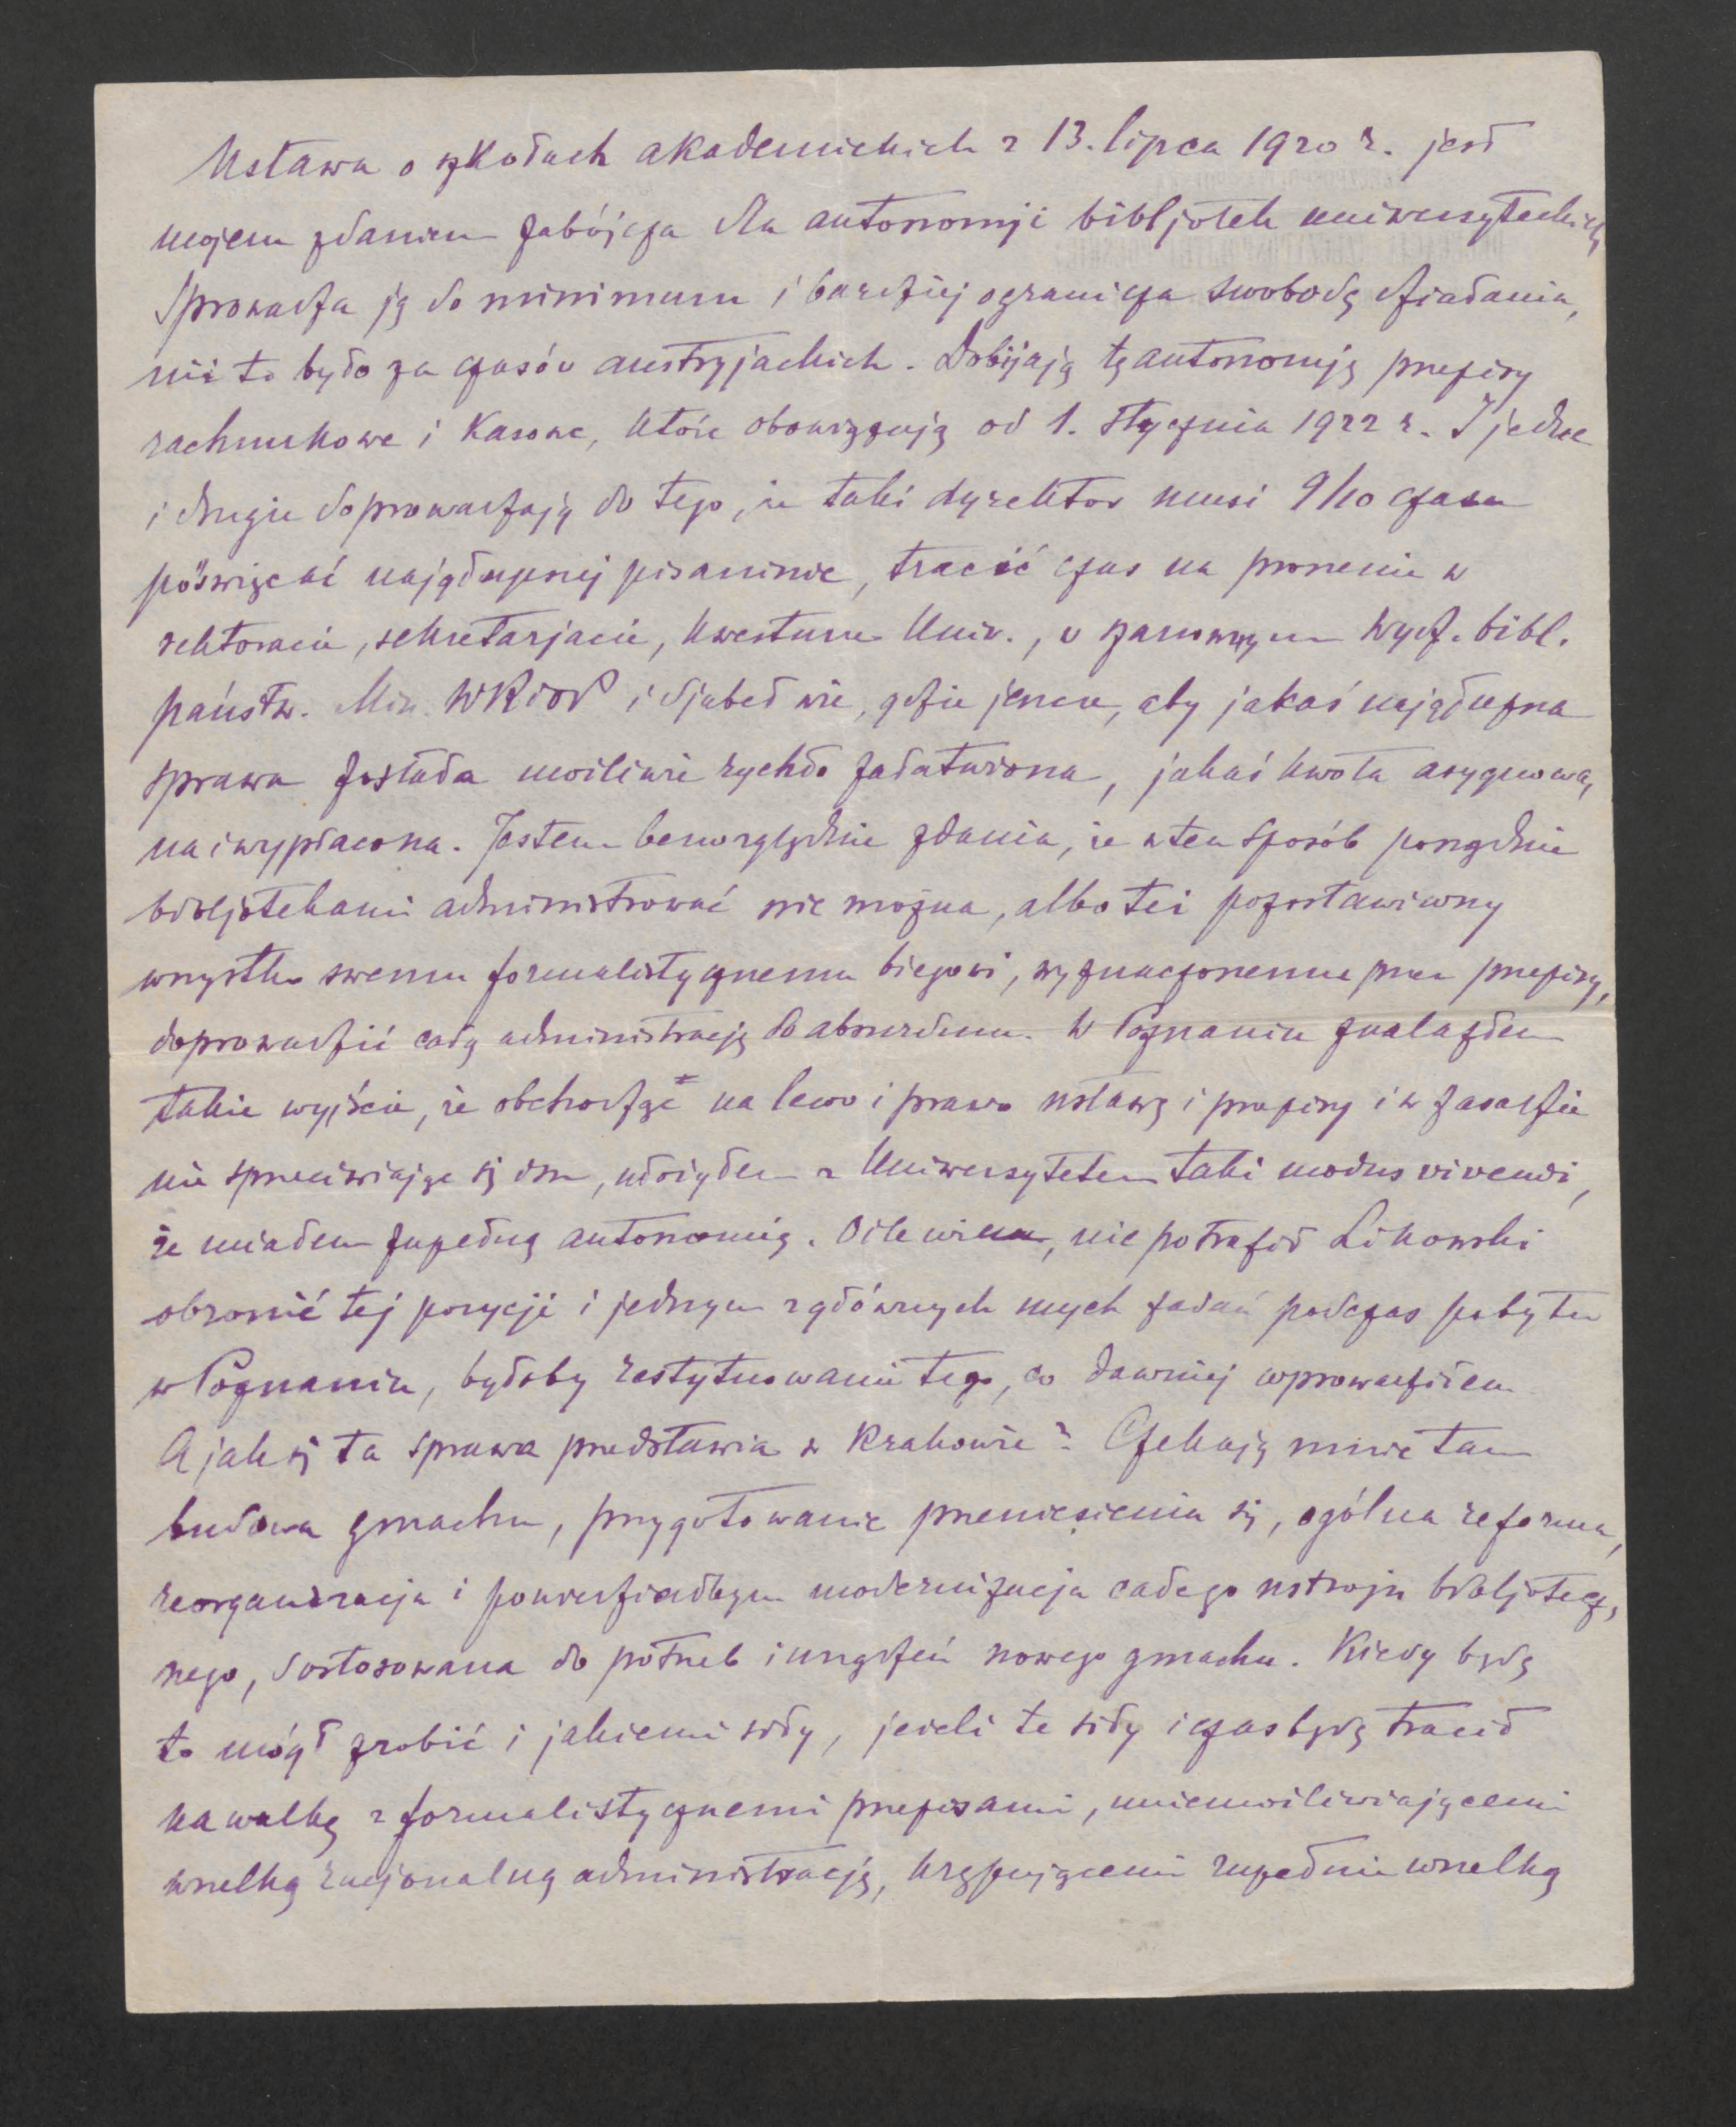 Ustawa o szkołach akademickich z 13. lipca 1920 r. jest
mojem zdaniem zabójcza dla autonomji bibljotek uniwersyteckich,
Sprowadza ją do minimum i bardziej ogranicza swobodę działania,
niż to było za czasów austryjackich. Dobijają tę autonomję przepisy
rachunkowe i kasowe, które obowiązują od 1. stycznia 1922 r. I jedne
i drugie doprowadzają do tego, że taki dyrektor musi 9/10 czasu
poświęcać najgłupszej pisaninie, tracić czas na proszenie w
rektoracie, sekretarjacie, kwesturze Univ., w szanownym Wydz. bibl.
państw. Min. WRiOP i djabeł wie, gdzie jeszcze, aby jakaś najgłupsza
sprawa została możliwie rychło załatwiona, jakaś kwota asygnowa-
na i wypłacona. Jestem bezwzględnie zdania, że w ten sposób porządnie
bibljotekami administrować nie można, albo też pozostawiwszy
wszystko swemu formalistycznemu biegowi, wyznaczonemu przez przepisy,
doprowadzić całą administrację do absurdum. W Poznaniu znalazłem
takie wyjście, że obchodząc na lewo i prawo ustawę i przepisy i w zasadzie
nie sprzeciwiając się im, ułożyłem z Uniwersytetem taki modus vivendi,
że miałem zupełną autonomię. O ile wiem, nie potrafił Likowski
obronić tej pozycji i jednym z głównych mych zadań podczas pobytu
w Poznaniu, byłoby restytuowanie tego, co dawniej wprowadziłem.
A jak się ta sprawa przedstawia w Krakowie? Czekają mnie tam
budowa gmachu, przygotowanie przeniesienia się, ogólna reforma,
reorganizacja i powiedziałbym modernizacja całego ustroju bibljotecz-
nego, dostosowana do potrzeb i urządzeń nowego gmachu. Kiedy będę
to mógł zrobić i jakiemi siły, jeżeli te siły i czas będę tracił
na walkę z formalistycznemi przepisami, uniemożliwiającemi
wszelką racjonalną administrację, krępującemi zupełnie wszelką